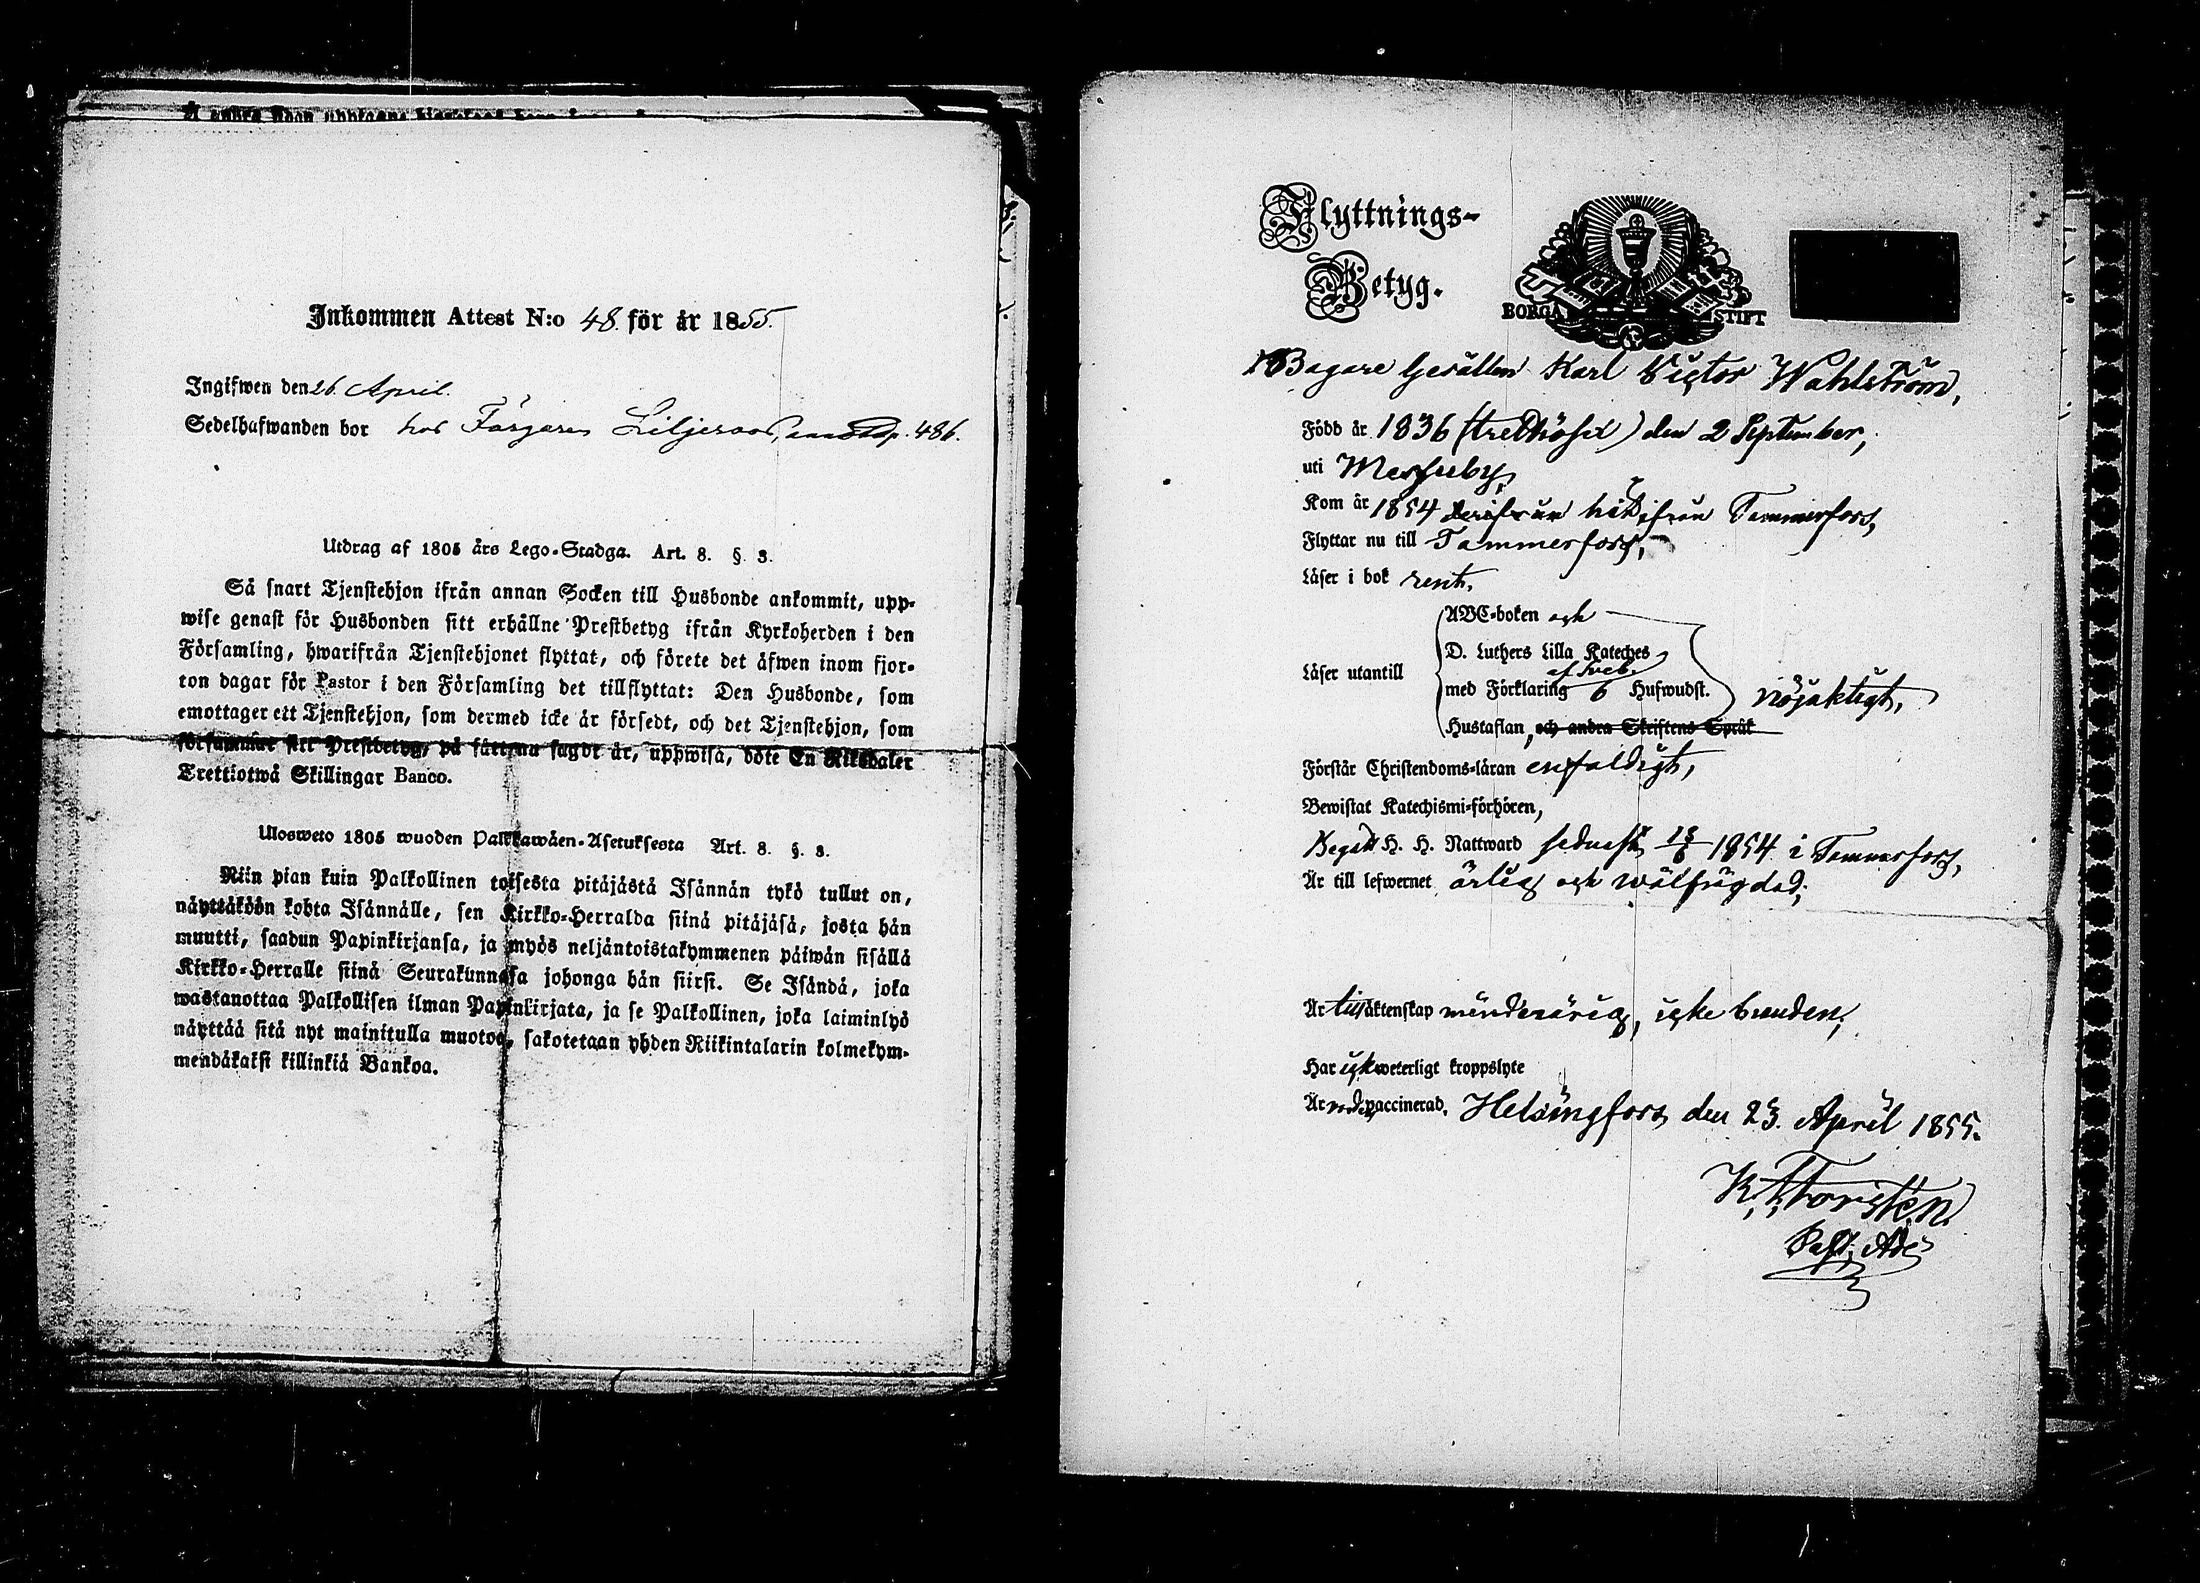 Inkommen Attest N:o 48. för år 1855.
Ingifwen den 26. April.
Sedelhafwanden bor hos Färgaren Liljeroos, p. 486.
Utdrag af 1805 års Lego-Stadga. Art. 8. §. 3.
Så snart Tjenstehjon ifrån annan Socken till Husbonde ankommit, upp-
wise genast för Husbonden sitt erhållne Prestbetyg ifrån Kyrkoherden i den
Församling, hwarifrån Tjenstehjonet flyttat, och förete det äfwen inom fjor-
ton dagar för Pastor i den Församling det tillflyttat: Den Husbonde, som
emottager ett Tjenstehjon, som dermed icke är försedt, och det Tjenstehjon, som
försummar sitt Prestbetyg, på sätt nu sagdt är, uppwisa, böte En Riksdaler
Trettiotwå Skillingar Banco.
Ulosweto 1805 wuoden Palkkawäen-Asetuksesta Art. 8. §. 3.
Niin pian kuin Palkollinen toisesta pitäjästä Isännän tykö tullut on,
näyttäköön kohta Isännälle, sen Kirkko-Herralda siinä pitäjäsä, josta hän
muutti, saadun Papinkirjansa, ja myös neljäntoistakymmenen päiwän sisällä
Kirkko-Herralle siinä Seurakunnasa johonga hän siirsi. Se Isändä, joka
wastanottaa Palkollisen ilman Papinkirjata, ja se Palkollinen, joka laiminlyö
näyttää sitä nyt mainitulla muotoa, sakotetaan yhden Riikintalarin kolmekym-
mendäkaksi killinkiä Bankoa.
Flyttnings-
Betyg.
BORGÅ STIFT
Bagare Gesällen Karl Victor Wahlström,
Född år 1836 (trettiosex) den 2 September,
uti Messuby,
Kom år 1854 derifrån hit ifrån Tammerfors,
Flyttar nu till Tammerfors,
Läser i bok rent,
ABC-boken och
D. Luthers Lilla Kateches
Läser utantill med Förklaring af Sveb. 6 Hufwudst. nöjaktigt,
Hustaflan, och andra Skriftens Språk
Förstår Christendoms-läran enfaldigt,
Bewistat Katechismi-förhören,
Begått H. H. Nattward sednast 18/6 1854 i Tammerfors,
Är till lefwernet ärlig och wälfrägdad;
Är till äktenskap minderårig, icke bunden;
Har icke weterligt kroppslyte
Är vaccinerad. Helsingfors, den 23. April 1855.
K. H. Forstén.
Past. Adj.